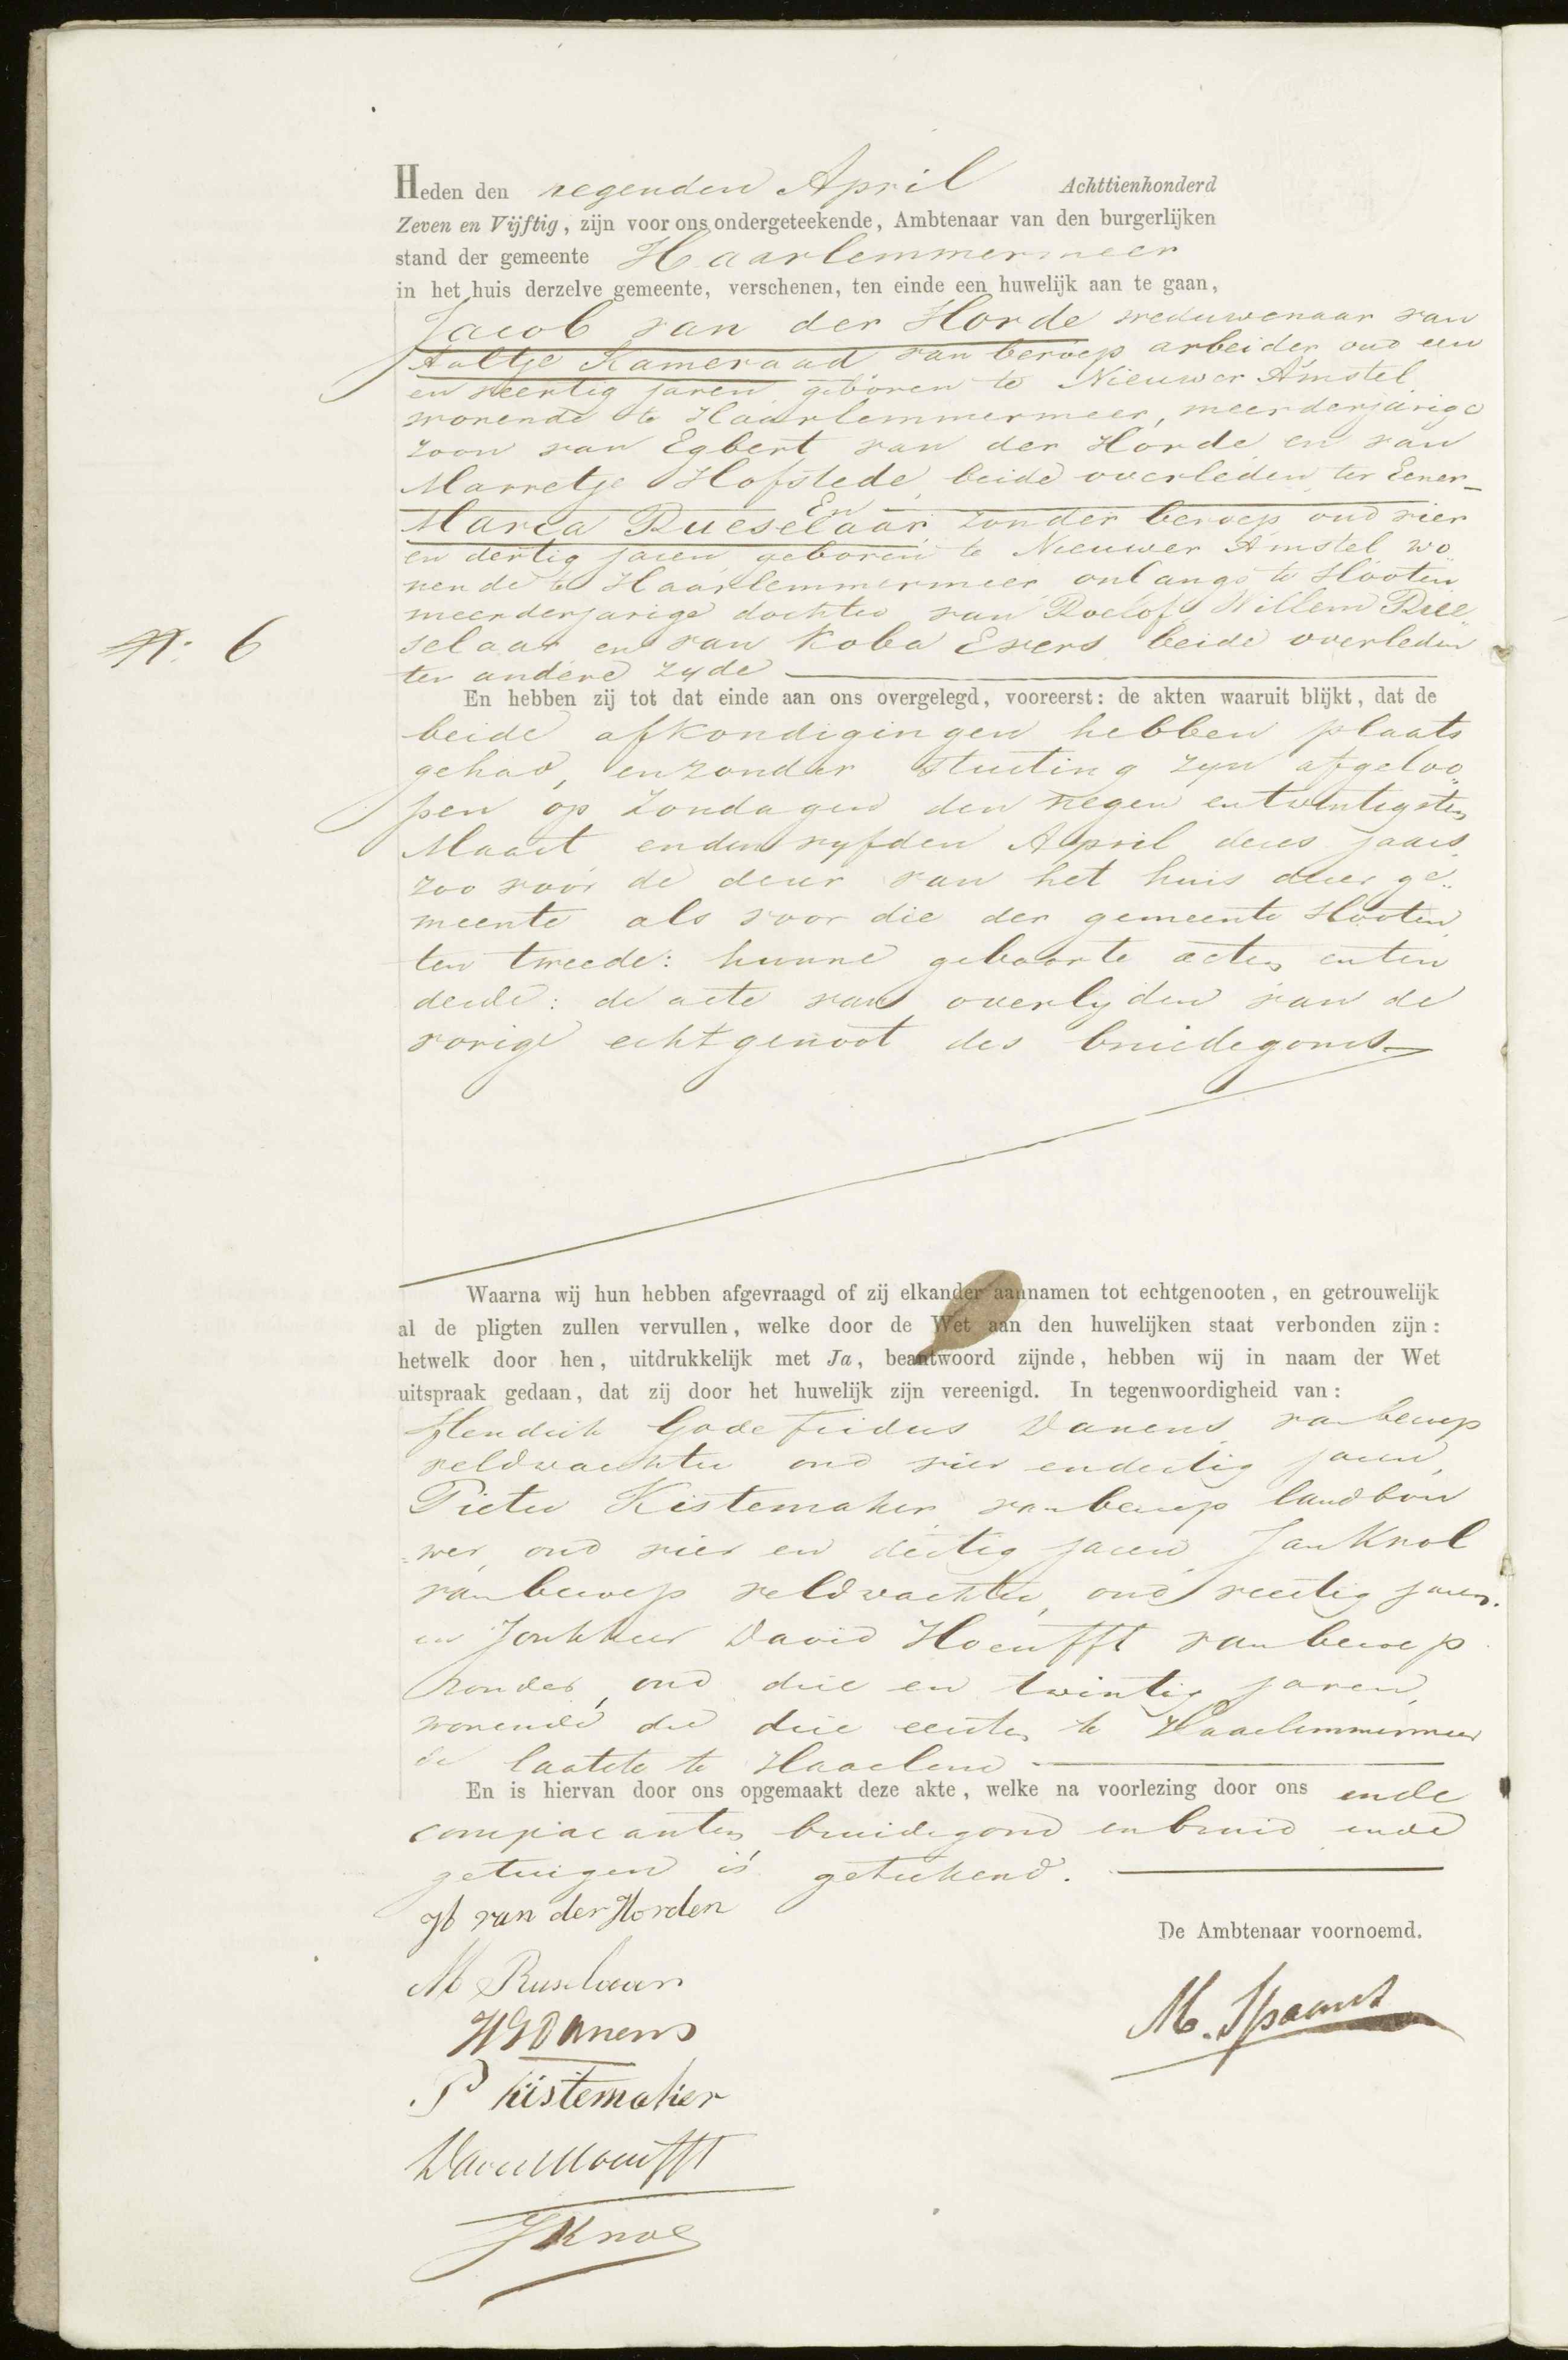 Heden den negenden April Achttienhonderd
Zeven en Vijftig, zijn voor ons ondergeteekende, Ambtenaar van den burgerlijken
stand der gemeente Haarlemmermeer
in het huis derzelve gemeente, verschenen, ten einde een huwelijk aan te gaan,
Jacob van der Horde weduwenaar van
Aaltje Kameraad van beroep arbeider, oud een
en veertig jaren geboren te Nieuwer Amstel
wonende te Haarlemmermeer, meerderjarige
zoon van Egbert van der Horde en van
Marretje Hofstede, beide overleden ter Eener-
En
Maria Rueselaar, zonder beroep oud vier
en dertig jaren geboren te Nieuwer Amstel wo
nende te Haarlemmermeer onlangs te Slooten
meerderjarige dochter van Roelof Willem Rue
selaar en van Koba Evers beide overleden
ter andere zyde
N: 6
En hebben zij tot dat einde aan ons overgelegd, vooreerst: de akten waaruit blijkt, dat de
beide afkondigingen hebben plaats
gehad, en zonder stuiting zyn afgeloo
pen op Zondagen den negen en twintigsten
Maart en den vyfden April dezes jaars
zoo voor de deur van het huis dezer ge
meente als voor die der gemeente Slooten
ten tweede: hunne geboorte acten en ten
derde: de acte van overlyden van de
vorige echtgenoot des bruidegoms
Waarna wij hun hebben afgevraagd of zij elkander aannamen tot echtgenooten, en getrouwelijk
al de pligten zullen vervullen, welke door de Wet aan den huwelijken staat verbonden zijn:
hetwelk door hen, uitdrukkelijk met Ja, beantwoord zijnde, hebben wij in naam der Wet
uitspraak gedaan, dat zij door het huwelijk zijn vereenigd. In tegenwoordigheid van:
Hendrik Godefridus Danens van beroep
veldwachter oud vier en dertig jaren,
Pieter Kistemaker van beroep landbou
wer, oud vier en dertig jaren Jan Knol
van beroep veldwachter, oud veertig jaren.
en Jonkheer David Hoeufft van beroep
zonder, oud drie en twintig jaren,
wonende de drie eersten te Haarlemmermeer
de laatste te Haarlem
En is hiervan door ons opgemaakt deze akte, welke na voorlezing door ons en de
comparanten bruidegom en bruid en de
getuigen is geteekend.
J van der Horden
M Ruselaar
H G Danens
P Kistemaker
David Hoeufft
J Knol
De Ambtenaar voornoemd.
M. Spaans